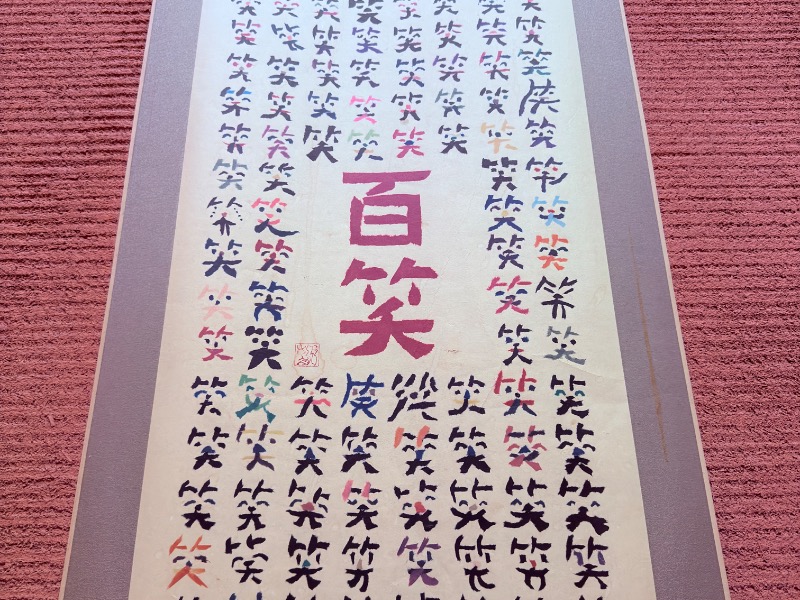 笑笑笑笑笑笑笑笑
笑笑笑笑笑笑笑笑
笑笑笑笑笑笑笑笑
笑笑笑笑笑笑笑笑
笑笑笑笑笑笑笑笑
百笑
笑笑 笑笑
笑笑 笑笑
笑笑 笑笑
笑笑 笑笑
笑笑 笑笑
笑笑笑笑笑笑笑笑
笑笑笑笑笑笑笑笑
笑笑笑笑笑笑笑笑
笑笑笑笑笑笑笑笑